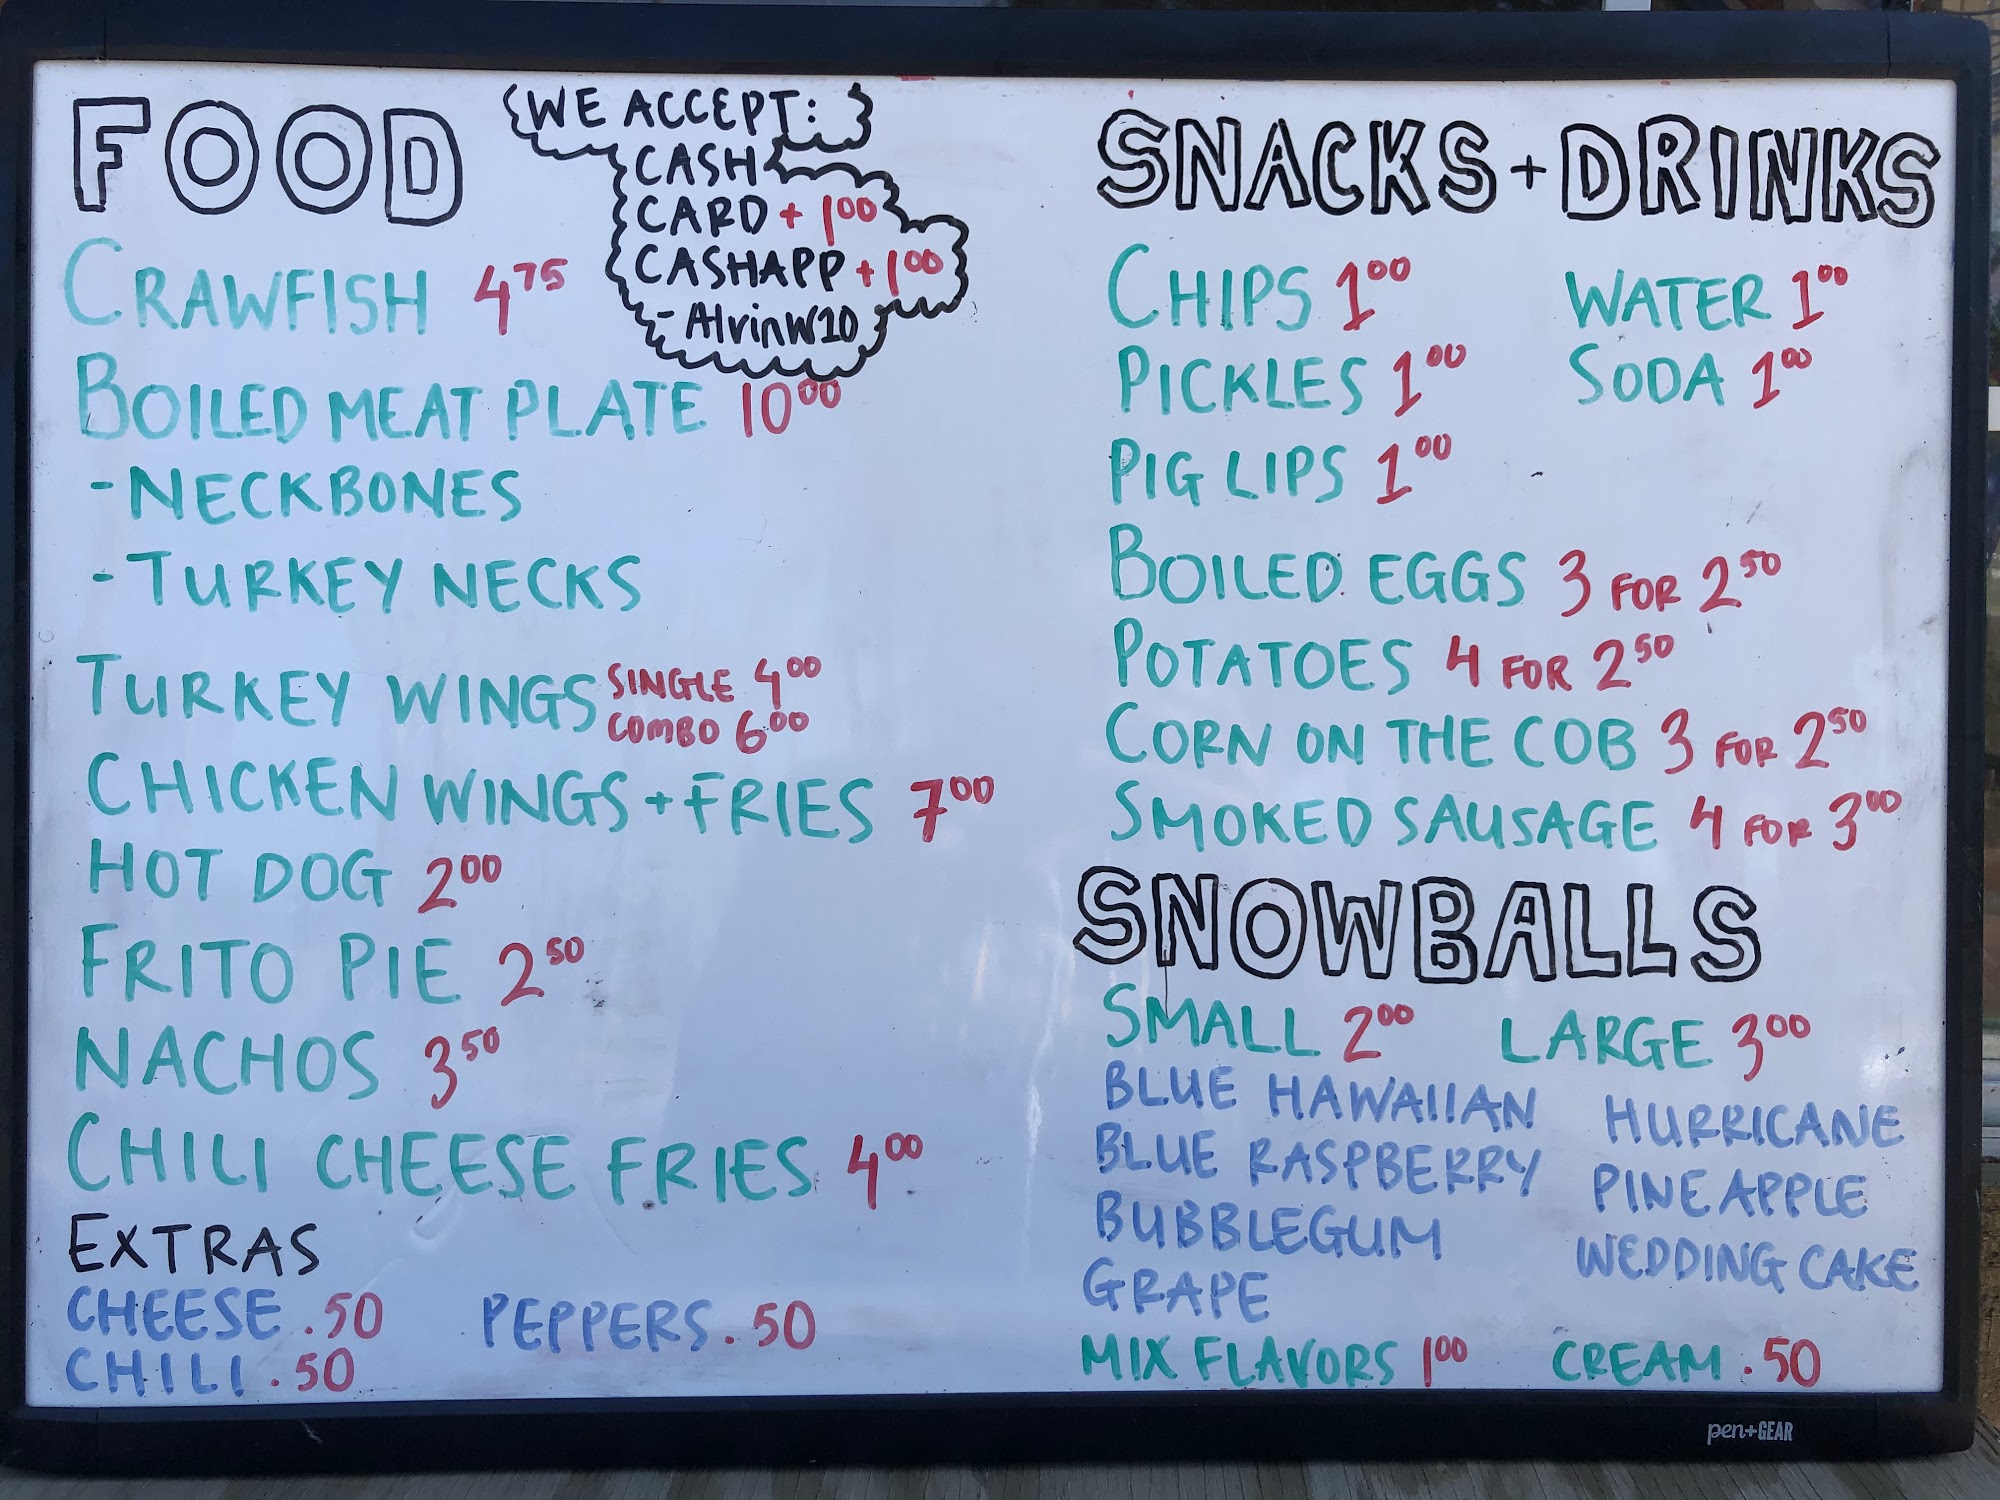 FOOD
WE ACCEPT:
CASH
CARD + 1.00
CASHAPP + 1.00
- AlvinW20
CRAWFISH 4.75
BOILED MEAT PLATE 10.00
- NECKBONES
- TURKEY NECKS
TURKEY WINGS SINGLE 4.00
COMBO 6.00
CHICKEN WINGS + FRIES 7.00
HOT DOG 2.00
FRITO PIE 2.50
NACHOS 3.50
CHILI CHEESE FRIES 4.00
EXTRAS
CHEESE .50 PEPPERS .50
CHILI .50
SNACKS + DRINKS
CHIPS 1.00 WATER 1.00
PICKLES 1.00 SODA 1.00
PIG LIPS 1.00
BOILED EGGS 3 FOR 2.50
POTATOES 4 FOR 2.50
CORN ON THE COB 3 FOR 2.50
SMOKED SAUSAGE 4 FOR 3.00
SNOWBALLS
SMALL 2.00 LARGE 3.00
BLUE HAWAIIAN HURRICANE
BLUE RASPBERRY PINEAPPLE
BUBBLEGUM WEDDING CAKE
GRAPE
MIX FLAVORS 1.00 CREAM .50
pen+GEAR